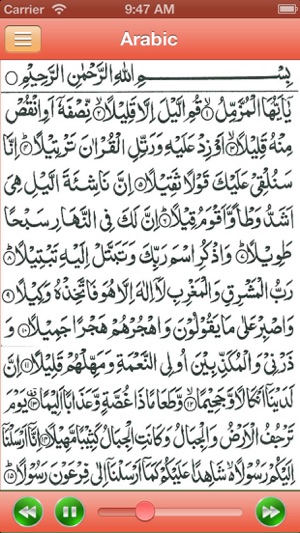 Carrier 9:47 AM
Arabic
بِسْمِ اللّٰهِ الرَّحْمٰنِ الرَّحِيْمِ
يٰٓاَيُّهَا الْمُزَّمِّلُ ۙ﴿۱﴾ قُمِ الَّيْلَ اِلَّا قَلِيْلًا ۙ﴿۲﴾ نِّصْفَهٗٓ اَوِ انْقُصْ
مِنْهُ قَلِيْلًا ۙ﴿۳﴾ اَوْ زِدْ عَلَيْهِ وَرَتِّلِ الْقُرْاٰنَ تَرْتِيْلًا ؕ﴿۴﴾ اِنَّا
سَنُلْقِيْ عَلَيْكَ قَوْلًا ثَقِيْلًا ﴿۵﴾ اِنَّ نَاشِئَةَ الَّيْلِ هِيَ
اَشَدُّ وَطْاً وَّاَقْوَمُ قِيْلًا ؕ﴿۶﴾ اِنَّ لَكَ فِي النَّهَارِ سَبْحًا
طَوِيْلًا ؕ﴿۷﴾ وَاذْكُرِ اسْمَ رَبِّكَ وَتَبَتَّلْ اِلَيْهِ تَبْتِيْلًا ؕ﴿۸﴾
رَبُّ الْمَشْرِقِ وَالْمَغْرِبِ لَاۤ اِلٰهَ اِلَّا هُوَ فَاتَّخِذْهُ وَكِيْلًا ﴿۹﴾
وَاصْبِرْ عَلٰى مَا يَقُوْلُوْنَ وَاهْجُرْهُمْ هَجْرًا جَمِيْلًا ﴿۱۰﴾
ذَرْنِيْ وَالْمُكَذِّبِيْنَ اُولِي النَّعْمَةِ وَمَهِّلْهُمْ قَلِيْلًا ﴿۱۱﴾ اِنَّ
لَدَيْنَاۤ اَنْكَالًا وَّجَحِيْمًا ۙ﴿۱۲﴾ وَّطَعَامًا ذَا غُصَّةٍ وَّعَذَابًا اَلِيْمًا ﴿۱۳﴾ يَوْمَ
تَرْجُفُ الْاَرْضُ وَالْجِبَالُ وَكَانَتِ الْجِبَالُ كَثِيْبًا مَّهِيْلًا ﴿۱۴﴾ اِنَّاۤ اَرْسَلْنَاۤ
اِلَيْكُمْ رَسُوْلًا ۙ شَاهِدًا عَلَيْكُمْ كَمَاۤ اَرْسَلْنَاۤ اِلٰى فِرْعَوْنَ رَسُوْلًا ؕ﴿۱۵﴾